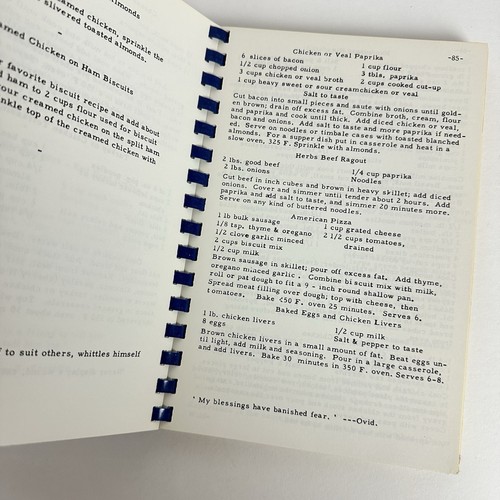 almonds
amed chicken, sprinkle the
slivered toasted almonds.
amed Chicken on Ham Biscuits
favorite biscuit recipe and add about
d ham to 2 cups flour used for biscuit
our creamed chicken on the split ham
nkle top of the creamed chicken with
to suit others, whittles himself
Chicken or Veal Paprika -85-
6 slices of bacon 1 cup flour
1/2 cup chopped onion 3 tbls. paprika
3 cups chicken or veal broth 2 cups cooked cut-up
1 cup heavy sweet or sour cream chicken or veal
Salt to taste
Cut bacon into small pieces and saute with onions until gold-
en brown; drain off excess fat. Combine broth, cream, flour
and paprika and cook until thick. Add diced chicken or veal,
bacon and onions. Add salt to taste and more paprika if need-
ed. Serve on noodles or timbale cases with toasted blanched
almonds. For a supper dish put in casserole and heat in a
slow oven, 325 F. Sprinkle with almonds.
Herbs Beef Ragout
2 lbs. good beef 1/4 cup paprika
2 lbs. onions Noodles
Cut beef in inch cubes and brown in heavy skillet; add diced
onions. Cover and simmer until tender about 2 hours. Add
paprika and add salt to taste, and simmer 20 minutes more.
Serve on any kind of buttered noodles.
American Pizza
1 lb bulk sausage 1 cup grated cheese
1/8 tsp. thyme & oregano 2 1/2 cups tomatoes,
1/2 clove garlic minced drained
2 cups biscuit mix
1/2 cup milk
Brown sausage in skillet; pour off excess fat. Add thyme,
oregano minced garlic. Combine biscuit mix with milk,
roll or pat dough to fit a 9 - inch round shallow pan.
Spread meat filling over dough; top with cheese, then
tomatoes. Bake 450 F. oven 25 minutes. Serves 6.
Baked Eggs and Chicken Livers
1 lb. chicken livers 1/2 cup milk
8 eggs Salt & pepper to taste
Brown chicken livers in a small amount of fat. Beat eggs un-
til light, add milk and seasoning. Pour in a large casserole,
and add livers. Bake 30 minutes in 350 F. oven. Serves 6-8.
' My blessings have banished fear. ' ---Ovid.